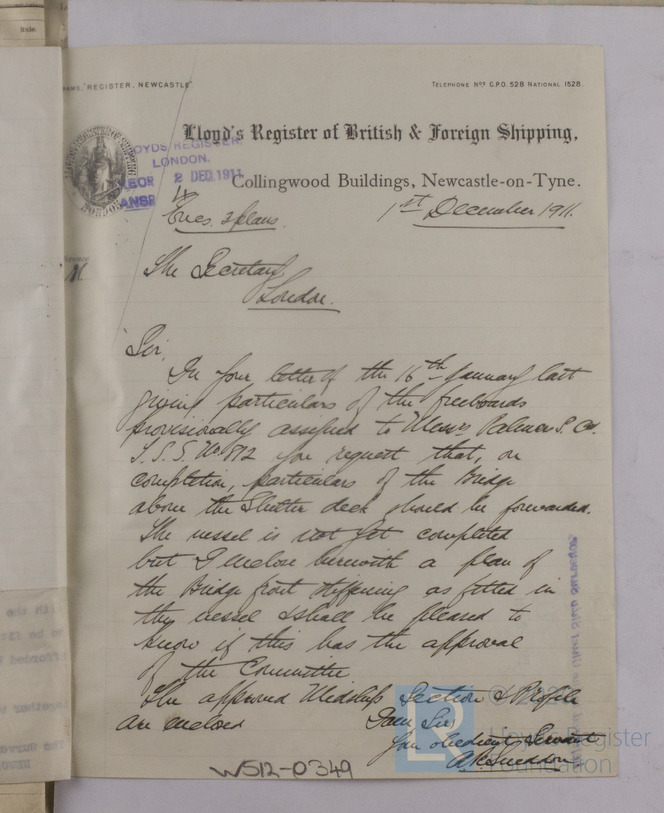 Date.
RAMS, "REGISTER, NEWCASTLE"
TELEPHONE Nos G.P.O. 528 NATIONAL 1528.
Lloyd's Register of British & Foreign Shipping,
LLOYDS REGISTER
LONDON.
2 DEC. 1911
Collingwood Buildings, Newcastle-on-Tyne.
Encs. 3 plans.
1st December 1911.
The Secretary
London.
Sir,
In your letter of the 16th January last
giving particulars of the freeboards
provisionally assigned to Messrs Palmers S. Co.
S.S.S. No. 812 you request that, on
completion, particulars of the Bridge
above the Shelter deck should be forwarded.
The vessel is not yet completed
but I enclose herewith a plan of
the Bridge front stiffening as fitted in
this vessel & shall be pleased to
know if this has the approval
of the Committee
The approved Midship Section & Profile
are enclosed
I am Sir
Your obedient Servant
W512-0349
Lloyd's Register
Foundation